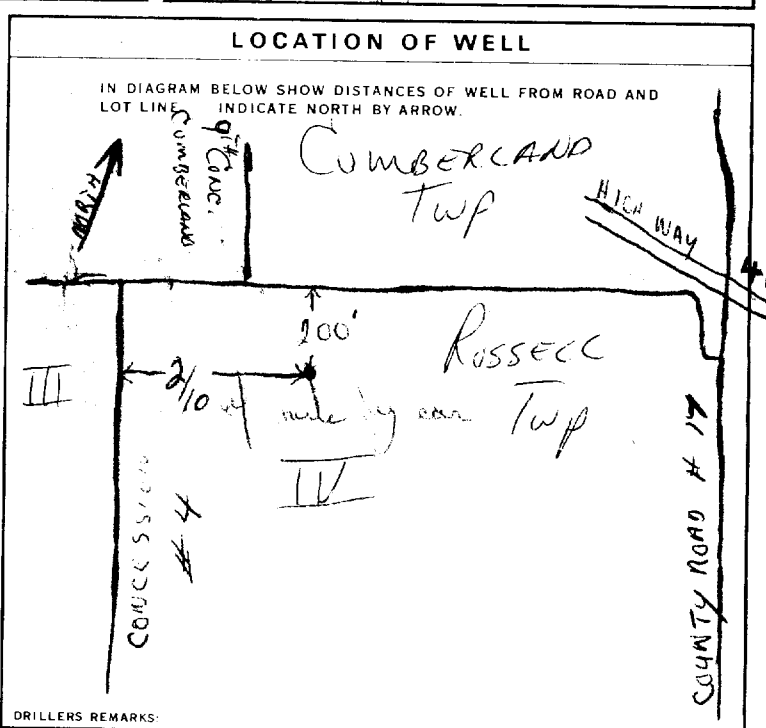 LOCATION OF WELL
IN DIAGRAM BELOW SHOW DISTANCES OF WELL FROM ROAD AND
LOT LINE. INDICATE NORTH BY ARROW.
NORTH
9TH CONC.
CUMBERLAND
CUMBERLAND
TWP
HIGH WAY
200'
RUSSELL
TWP
III
2/10 of mile by car
IV
CONCESSION
# 4
COUNTY ROAD # 17
DRILLERS REMARKS: